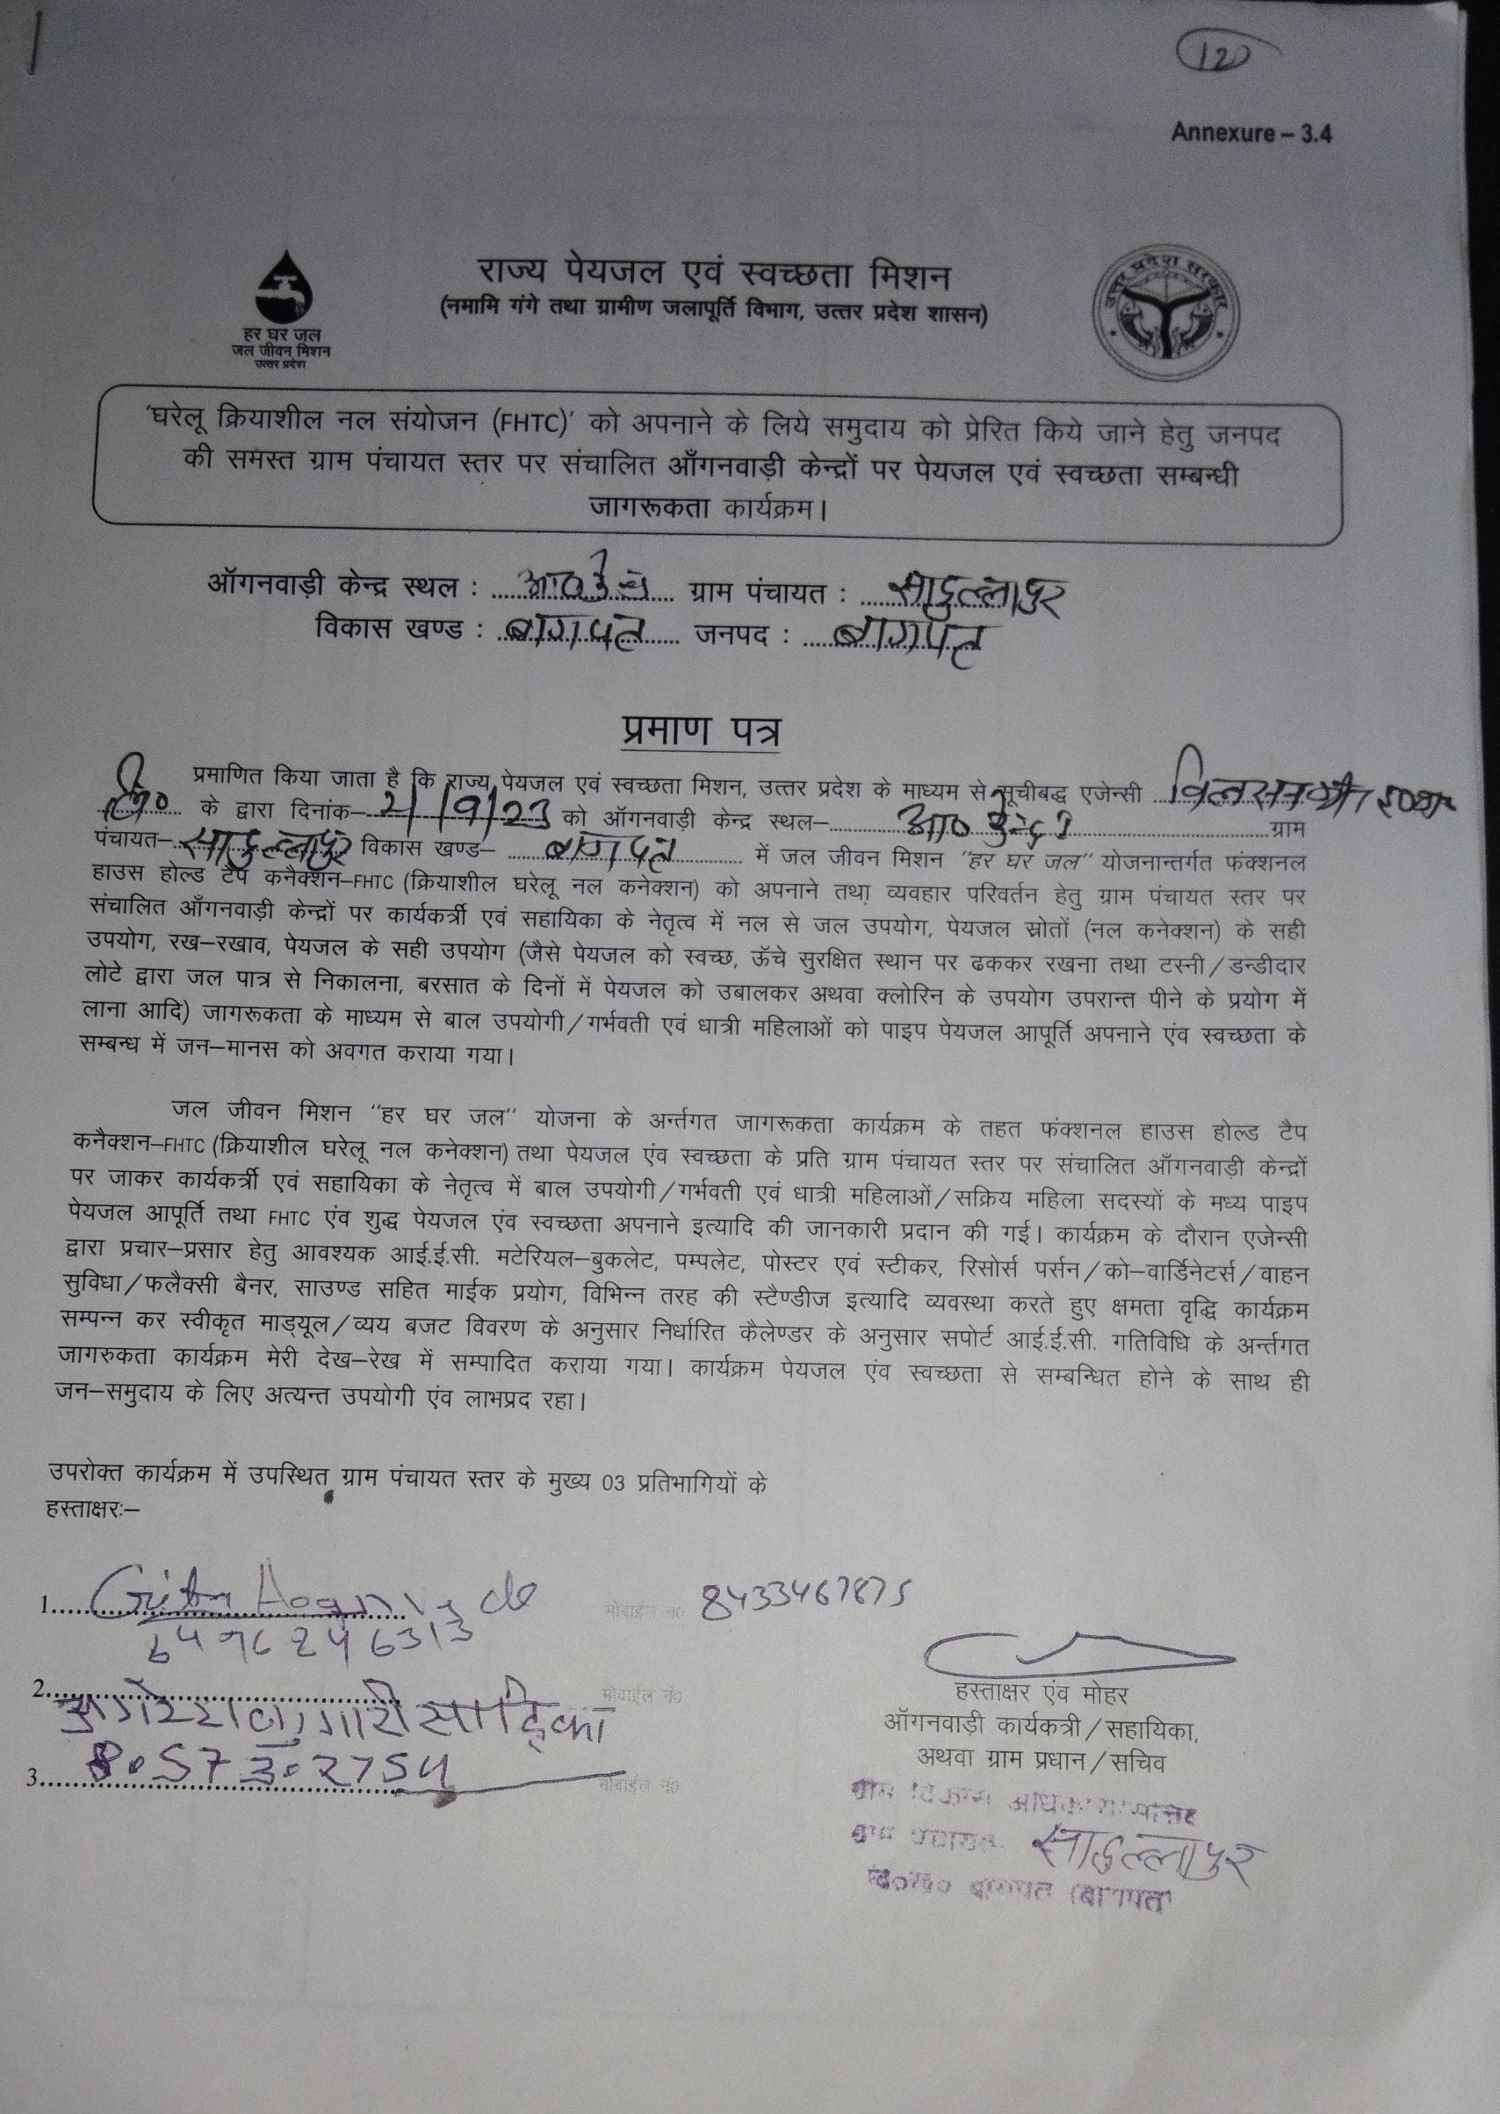 120
Annexure – 3.4
राज्य पेयजल एवं स्वच्छता मिशन
(नमामि गंगे तथा ग्रामीण जलापूर्ति विभाग, उत्तर प्रदेश शासन)
हर घर जल
जल जीवन मिशन
उत्तर प्रदेश
उत्तर प्रदेश सरकार
'घरेलू क्रियाशील नल संयोजन (FHTC)' को अपनाने के लिये समुदाय को प्रेरित किये जाने हेतु जनपद
की समस्त ग्राम पंचायत स्तर पर संचालित आँगनवाड़ी केन्द्रों पर पेयजल एवं स्वच्छता सम्बन्धी
जागरूकता कार्यक्रम।
ऑगनवाड़ी केन्द्र स्थल : ग्राम पंचायत : सादुल्लापुर
विकास खण्ड : बागपत जनपद : बागपत
प्रमाण पत्र
प्रमाणित किया जाता है कि राज्य पेयजल एवं स्वच्छता मिशन, उत्तर प्रदेश के माध्यम से सूचीबद्ध एजेन्सी
लि० के द्वारा दिनांक– 21/9/23 को ऑगनवाड़ी केन्द्र स्थल– ग्राम
पंचायत– सादुल्लापुर विकास खण्ड– बागपत में जल जीवन मिशन "हर घर जल" योजनान्तर्गत फंक्शनल
हाउस होल्ड टैप कनैक्शन–FHTC (क्रियाशील घरेलू नल कनेक्शन) को अपनाने तथा व्यवहार परिवर्तन हेतु ग्राम पंचायत स्तर पर
संचालित आँगनवाड़ी केन्द्रों पर कार्यकर्त्री एवं सहायिका के नेतृत्व में नल से जल उपयोग, पेयजल स्रोतों (नल कनेक्शन) के सही
उपयोग, रख–रखाव, पेयजल के सही उपयोग (जैसे पेयजल को स्वच्छ, ऊँचे सुरक्षित स्थान पर ढककर रखना तथा टस्नी/डन्डीदार
लोटे द्वारा जल पात्र से निकालना, बरसात के दिनों में पेयजल को उबालकर अथवा क्लोरिन के उपयोग उपरान्त पीने के प्रयोग में
लाना आदि) जागरूकता के माध्यम से बाल उपयोगी/गर्भवती एवं धात्री महिलाओं को पाइप पेयजल आपूर्ति अपनाने एंव स्वच्छता के
सम्बन्ध में जन–मानस को अवगत कराया गया।
जल जीवन मिशन "हर घर जल" योजना के अर्न्तगत जागरूकता कार्यक्रम के तहत फंक्शनल हाउस होल्ड टैप
कनैक्शन–FHTC (क्रियाशील घरेलू नल कनेक्शन) तथा पेयजल एंव स्वच्छता के प्रति ग्राम पंचायत स्तर पर संचालित आँगनवाड़ी केन्द्रों
पर जाकर कार्यकर्त्री एवं सहायिका के नेतृत्व में बाल उपयोगी/गर्भवती एवं धात्री महिलाओं/सक्रिय महिला सदस्यों के मध्य पाइप
पेयजल आपूर्ति तथा FHTC एंव शुद्ध पेयजल एंव स्वच्छता अपनाने इत्यादि की जानकारी प्रदान की गई। कार्यक्रम के दौरान एजेन्सी
द्वारा प्रचार–प्रसार हेतु आवश्यक आई.ई.सी. मटेरियल–बुकलेट, पम्पलेट, पोस्टर एवं स्टीकर, रिसोर्स पर्सन/को–वार्डिनेटर्स/वाहन
सुविधा/फलैक्सी बैनर, साउण्ड सहित माईक प्रयोग, विभिन्न तरह की स्टैण्डीज इत्यादि व्यवस्था करते हुए क्षमता वृद्धि कार्यक्रम
सम्पन्न कर स्वीकृत माड्यूल/व्यय बजट विवरण के अनुसार निर्धारित कैलेण्डर के अनुसार सपोर्ट आई.ई.सी. गतिविधि के अर्न्तगत
जागरुकता कार्यक्रम मेरी देख–रेख में सम्पादित कराया गया। कार्यक्रम पेयजल एंव स्वच्छता से सम्बन्धित होने के साथ ही
जन–समुदाय के लिए अत्यन्त उपयोगी एंव लाभप्रद रहा।
उपरोक्त कार्यक्रम में उपस्थित ग्राम पंचायत स्तर के मुख्य 03 प्रतिभागियों के
हस्ताक्षरः–
1. मोबाईल नं० 8433467875
2. मोबाईल नं०
3. 8057302754 मोबाईल नं०
हस्ताक्षर एंव मोहर
ऑगनवाड़ी कार्यकत्री/सहायिका,
अथवा ग्राम प्रधान/सचिव
ग्राम विकास अधिकारी
ग्राम पंचायत सादुल्लापुर
वि०ख० बागपत (बागपत)